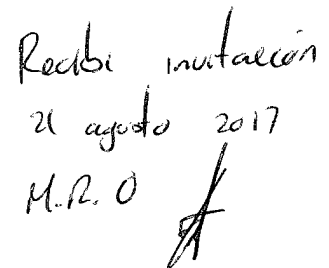 Recibi invitación
21 agosto 2017
M.R. O